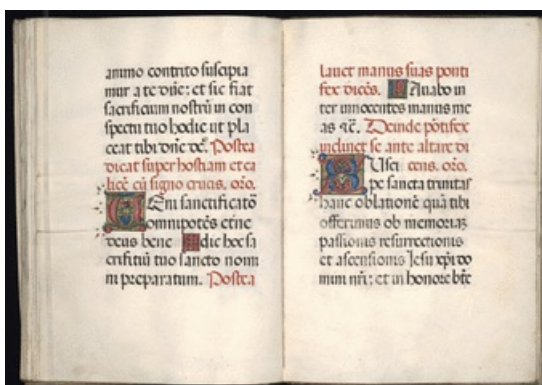 animo contrito suscipia
mur a te dñe: et sic fiat
sacrificium nostrũ in con
spectu tuo hodie ut pla
ceat tibi dñe de'. Postea
dicat super hostiam et ca
licẽ cũ signo crucis. orõ.
Veni sanctificatõ
omnipotẽs etne
deus bene dic hoc sa
crifitiũ tuo sancto nomi
ni preparatum. Postea
lauet manus suas ponti
fex dicẽs. Lauabo in
ter innocentes manus me
as ⁊c̃. Deinde põtifex
inclinet se ante altare di
Susci cens. orõ.
pe sancta trinitas
hanc oblationẽ quã tibi
offerimus ob memoriaȝ
passionis resurrectionis
et ascensionis Jesu xp̃i do
mini nr̃i: et in honore btẽ